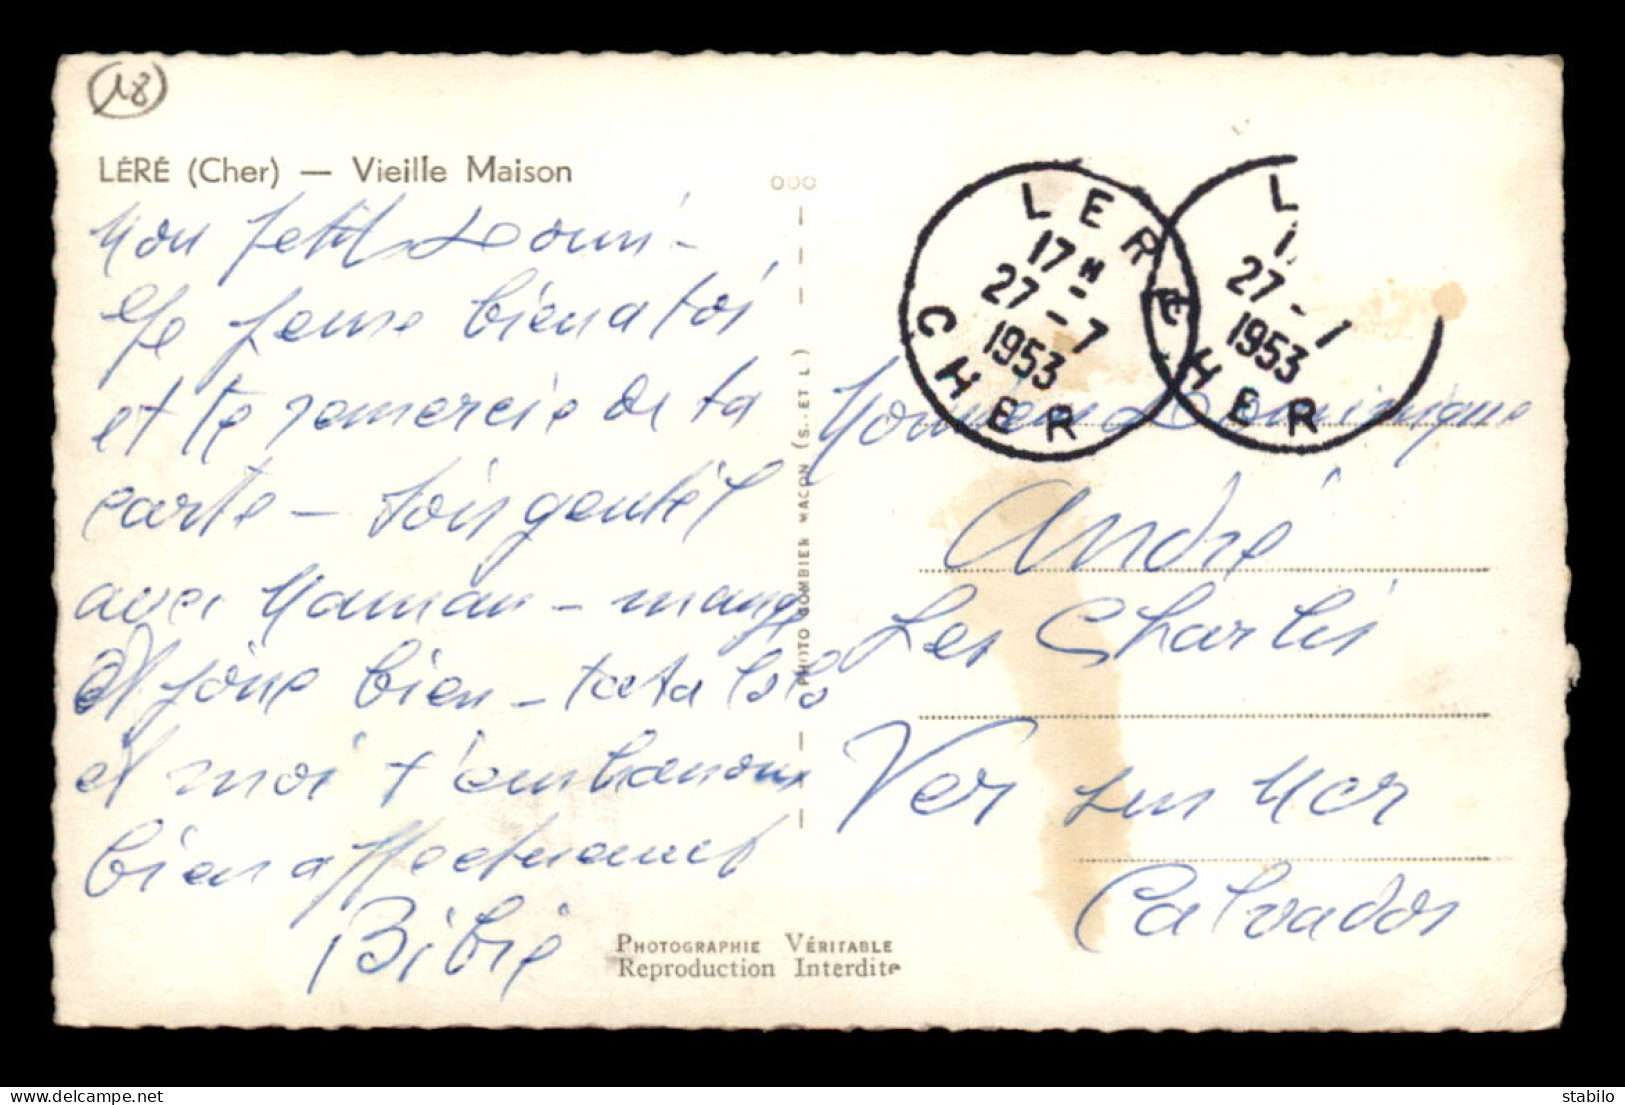 18
LÉRÉ (Cher) — Vieille Maison
Mon petit Domi -
Je pense bien a toi
et te remercie de ta
carte - sois gentil
avec Maman - mange
et joue bien - tata Lolo
et moi t'embrassons
bien affectueusement
Bibie
PHOTOGRAPHIE VÉRITABLE
Reproduction Interdite
PHOTO COMBIER MACON (S. ET L.)
LERE
17 H
27 - 7
1953
CHER
L
27 - 7
1953
HER
Monsieur Dominique
André
Les Charlis
Ver sur Mer
Calvados
stabilo